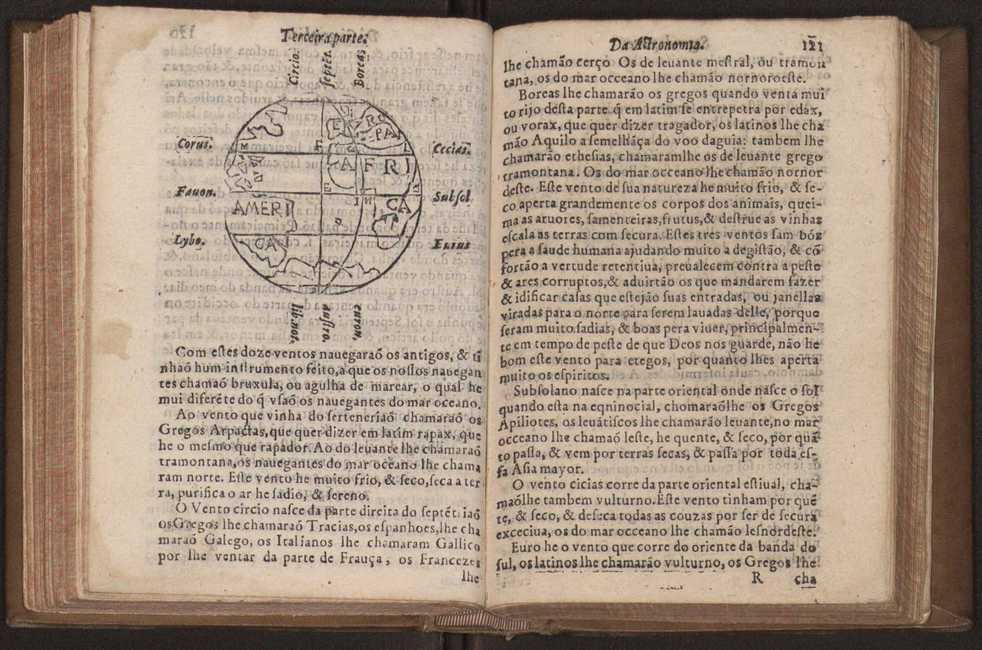 Terceira parte.
Circio.
septēt.
Boreas
Corus.
Cecias.
Fauon.
Subsol
Lybo.
Eurus
AMERI
CA
AFRI
CA
lib.not.
austro.
euron.
Com estes doze ventos nauegaraõ os antigos, & tī
nhaõ hum instrumento feito, a que os nossos nauegan
tes chamaõ bruxula, ou agulha de marear, o qual he
mui diferēte do q̃ vsaõ os nauegantes do mar oceano.
Ao vento que vinha do serteneriaõ chamaraõ os
Gregos Arpactas, que quer dizer em latim rapax, que
he o mesmo que rapador. Ao do leuante lhe chamaraõ
tramontana, os nauegantes do mar oceano lhe chama
ram norte. Este vento he muito frio, & seco, seca a ter
ra, purifica o ar he sadio, & sereno.
O Vento circio nasce da parte direita do septētriaõ
os Gregos lhe chamaraõ Tracias, os espanhoes, lhe cha
maraõ Galego, os Italianos lhe chamaram Gallico
por lhe ventar da parte de Frauça, os Francezes
lhe
Da Astronomia.
121
lhe chamão cerço Os de leuante mestral, ou tramon
tana, os do mar occeano lhe chamão nornoroeste.
Boreas lhe chamarão os gregos quando venta mui
to rijo desta parte q̃ em latim se entrepetra por edax,
ou vorax, que quer dizer tragador, os latinos lhe cha
mão Aquilo a semelhāça do voo daguia: tambem lhe
chamarão ethesias, chamaramlhe os de leuante grego
tramontana. Os do mar occeano lhe chamão nornor
deste. Este vento de sua natureza he muito frio, & se-
co aperta grandemente os corpos dos animais, quei-
ma as aruores, samenteiras, frutus, & destrue as vinhas
escala as terras com secura. Estes tres ventos sam bōs
pera a saude humana ajudando muito a degistão, & cō
fortão a vertude retentiua, preualecem contra a peste
& ares corruptos, & aduirtão os que mandarem fazer
& idificar casas que estejão suas entradas, ou janellas
viradas para o norte para serem lauadas delle, porque
seram muito sadias, & boas pera viuer, principalmen-
te em tempo de peste de que Deos nos guarde, não he
bom este vento para etegos, por quanto lhes aperta
muito os espiritos.
Subsolano nasce na parte oriental onde nasce o sol
quando esta na eqninocial, chomaraõlhe os Gregos
Apiliotes, os leuātiscos lhe chamarão leuante, no mar
occeano lhe chamaõ leste, he quente, & seco, por quā
to passa, & vem por terras secas, & passa por toda es-
sa Asia mayor.
O vento cicias corre da parte oriental estiual, cha-
maõlhe tambem vulturno. Este vento tinham por quē
te, & seco, & deseca todas as couzas por ser de secura
exceciua, os do mar occeano lhe chamão lesnordeste.
Euro he o vento que corre do oriente da banda do
sul, os latinos lhe chamarão vulturno, os Gregos lhe
R cha